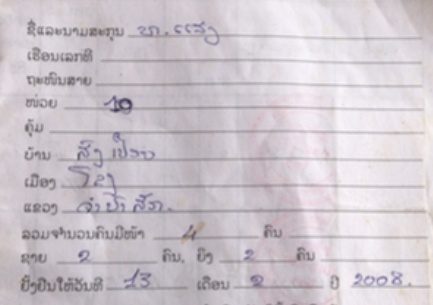 ຊື່ແລະນາມສະກຸນ ທ. ແສງ
ເຮືອນເລກທີ
ຖະໜົນສາຍ
ໜ່ວຍ 10
ຄຸ້ມ
ບ້ານ
ເມືອງ ໂຂງ
ແຂວງ ຈຳປາສັກ.
ລວມຈຳນວນຄົນມີໜ້າ 4 ຄົນ
ຊາຍ 2 ຄົນ, ຍິງ 2 ຄົນ
ຢັ້ງຢືນໃຫ້ວັນທີ 13 ເດືອນ 2 ປີ 2008.